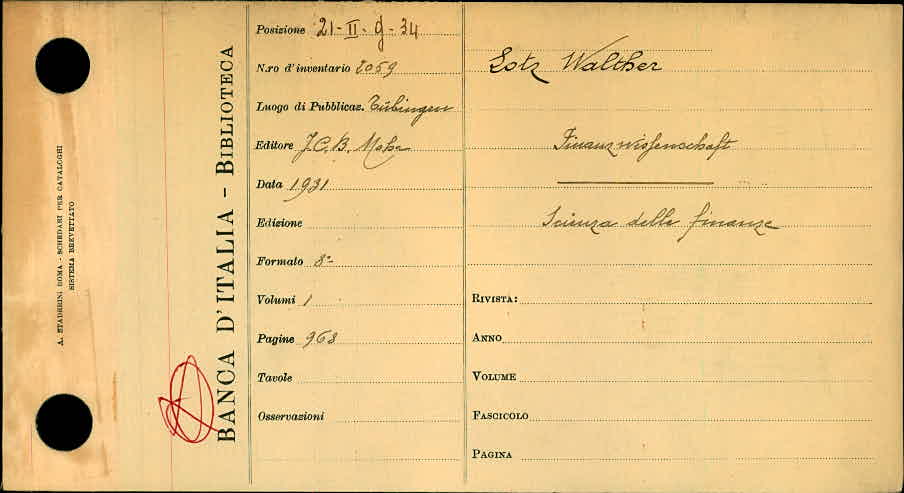 A. STADERINI ROMA - SCHEDARI PER CATALOGHI
SISTEMA BREVETTATO
BANCA D'ITALIA - BIBLIOTECA
Posizione 21-II-9-34
N.ro d'inventario 2059
Luogo di Pubblicaz. Tübingen
Editore J.C.B. Mohr
Data 1931
Edizione
Formato 8°
Volumi 1
Pagine 968
Tavole
Osservazioni
Lotz Walther
Finanzwissenschaft
Scienza delle finanze
RIVISTA:
ANNO
VOLUME
FASCICOLO
PAGINA